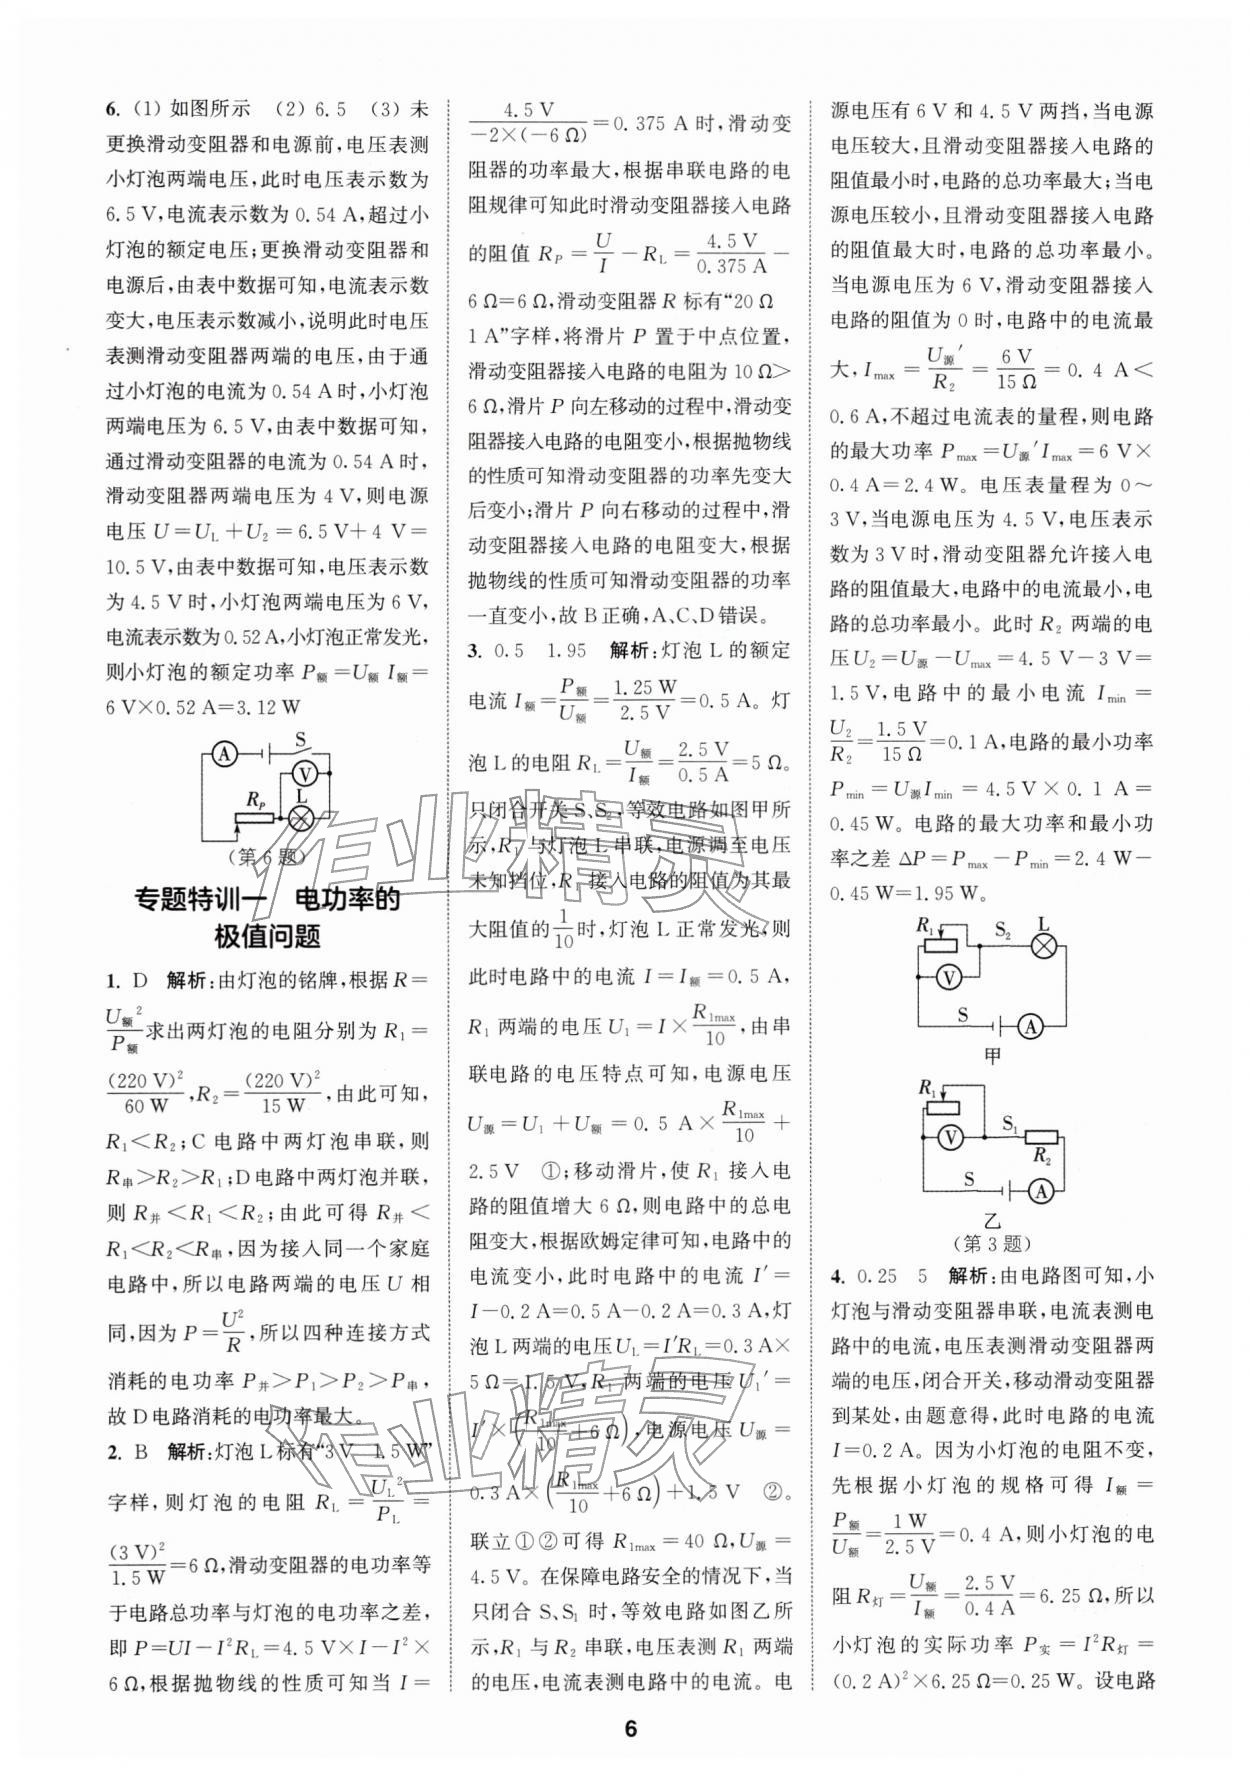 6. (1) 如图所示　(2) 6.5　(3) 未
更换滑动变阻器和电源前,电压表测
小灯泡两端电压,此时电压表示数为
6.5 V,电流表示数为 0.54 A,超过小
灯泡的额定电压;更换滑动变阻器和
电源后,由表中数据可知,电流表示数
变大,电压表示数减小,说明此时电压
表测滑动变阻器两端的电压,由于通
过小灯泡的电流为 0.54 A 时,小灯泡
两端电压为 6.5 V,由表中数据可知,
通过滑动变阻器的电流为 0.54 A 时,
滑动变阻器两端电压为 4 V,则电源
电压 U＝U_L＋U_2＝6.5 V＋4 V＝
10.5 V,由表中数据可知,电压表示数
为 4.5 V 时,小灯泡两端电压为 6 V,
电流表示数为 0.52 A,小灯泡正常发光,
则小灯泡的额定功率 P_额＝U_额 I_额＝
6 V×0.52 A＝3.12 W
A S
V
R_P L
(第 6 题)
专题特训一　电功率的
极值问题
1. D　解析:由灯泡的铭牌,根据 R＝
U_额²/P_额 求出两灯泡的电阻分别为 R_1＝
(220 V)²/60 W,R_2＝(220 V)²/15 W,由此可知,
R_1＜R_2;C 电路中两灯泡串联,则
R_串＞R_2＞R_1;D 电路中两灯泡并联,
则 R_并＜R_1＜R_2;由此可得 R_并＜
R_1＜R_2＜R_串,因为接入同一个家庭
电路中,所以电路两端的电压 U 相
同,因为 P＝U²/R,所以四种连接方式
消耗的电功率 P_并＞P_1＞P_2＞P_串,
故 D 电路消耗的电功率最大。
2. B　解析:灯泡 L 标有“3 V　1.5 W”
字样,则灯泡的电阻 R_L＝U_L²/P_L＝
(3 V)²/1.5 W＝6 Ω,滑动变阻器的电功率等
于电路总功率与灯泡的电功率之差,
即 P＝UI－I²R_L＝4.5 V×I－I²×
6 Ω,根据抛物线的性质可知当 I＝
4.5 V/−2×(−6 Ω)＝0.375 A 时,滑动变
阻器的功率最大,根据串联电路的电
阻规律可知此时滑动变阻器接入电路
的阻值 R_P＝U/I－R_L＝4.5 V/0.375 A－
6 Ω＝6 Ω,滑动变阻器 R 标有“20 Ω
1 A”字样,将滑片 P 置于中点位置,
滑动变阻器接入电路的电阻为 10 Ω＞
6 Ω,滑片 P 向左移动的过程中,滑动变
阻器接入电路的电阻变小,根据抛物线
的性质可知滑动变阻器的功率先变大
后变小;滑片 P 向右移动的过程中,滑
动变阻器接入电路的电阻变大,根据
抛物线的性质可知滑动变阻器的功率
一直变小,故 B 正确,A、C、D 错误。
3. 0.5　1.95　解析:灯泡 L 的额定
电流 I_额＝P_额/U_额＝1.25 W/2.5 V＝0.5 A。灯
泡 L 的电阻 R_L＝U_额/I_额＝2.5 V/0.5 A＝5 Ω。
只闭合开关 S、S_2,等效电路如图甲所
示,R_1 与灯泡 L 串联,电源调至电压
未知挡位,R_1 接入电路的阻值为其最
大阻值的 1/10 时,灯泡 L 正常发光,则
此时电路中的电流 I＝I_额＝0.5 A,
R_1 两端的电压 U_1＝I×R_1max/10,由串
联电路的电压特点可知,电源电压
U_源＝U_1＋U_额＝0.5 A×R_1max/10＋
2.5 V　①;移动滑片,使 R_1 接入电
路的阻值增大 6 Ω,则电路中的总电
阻变大,根据欧姆定律可知,电路中的
电流变小,此时电路中的电流 I′＝
I－0.2 A＝0.5 A－0.2 A＝0.3 A,灯
泡 L 两端的电压 U_L＝I′R_L＝0.3 A×
5 Ω＝1.5 V,R_1 两端的电压 U_1′＝
I′×(R_1max/10＋6 Ω),电源电压 U_源＝
0.3 A×(R_1max/10＋6 Ω)＋1.5 V　②。
联立①②可得 R_1max＝40 Ω,U_源＝
4.5 V。在保障电路安全的情况下,当
只闭合 S、S_1 时,等效电路如图乙所
示,R_1 与 R_2 串联,电压表测 R_1 两端
的电压,电流表测电路中的电流。电
源电压有 6 V 和 4.5 V 两挡,当电源
电压较大,且滑动变阻器接入电路的
阻值最小时,电路的总功率最大;当电
源电压较小,且滑动变阻器接入电路
的阻值最大时,电路的总功率最小。
当电源电压为 6 V,滑动变阻器接入
电路的阻值为 0 时,电路中的电流最
大,I_max＝U_源′/R_2＝6 V/15 Ω＝0.4 A＜
0.6 A,不超过电流表的量程,则电路
的最大功率 P_max＝U_源′I_max＝6 V×
0.4 A＝2.4 W。电压表量程为 0～
3 V,当电源电压为 4.5 V,电压表示
数为 3 V 时,滑动变阻器允许接入电
路的阻值最大,电路中的电流最小,电
路的总功率最小。此时 R_2 两端的电
压 U_2＝U_源－U_max＝4.5 V－3 V＝
1.5 V,电路中的最小电流 I_min＝
U_2/R_2＝1.5 V/15 Ω＝0.1 A,电路的最小功率
P_min＝U_源I_min＝4.5 V×0.1 A＝
0.45 W。电路的最大功率和最小功
率之差 ΔP＝P_max－P_min＝2.4 W－
0.45 W＝1.95 W。
R_1 S_2 L
V
S A
甲
R_1
V S_1 R_2
S A
乙
(第 3 题)
4. 0.25　5　解析:由电路图可知,小
灯泡与滑动变阻器串联,电流表测电
路中的电流,电压表测滑动变阻器两
端的电压,闭合开关,移动滑动变阻器
到某处,由题意得,此时电路的电流
I＝0.2 A。因为小灯泡的电阻不变,
先根据小灯泡的规格可得 I_额＝
P_额/U_额＝1 W/2.5 V＝0.4 A,则小灯泡的电
阻 R_灯＝U_额/I_额＝2.5 V/0.4 A＝6.25 Ω,所以
小灯泡的实际功率 P_实＝I²R_灯＝
(0.2 A)²×6.25 Ω＝0.25 W。设电路
6
作业精灵
作业精灵